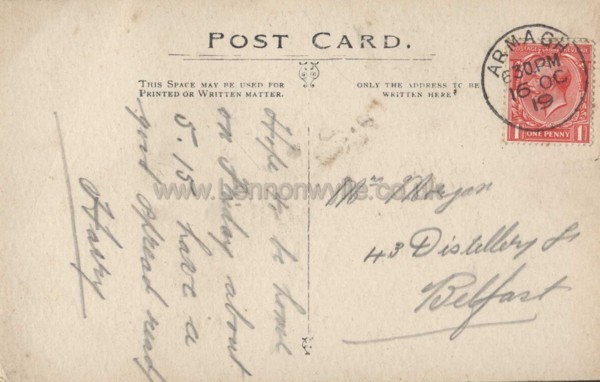 POST CARD.
THIS SPACE MAY BE USED FOR
PRINTED OR WRITTEN MATTER.
ONLY THE ADDRESS TO BE
WRITTEN HERE
ARMAGH
6 30 PM
16 OC
19
POSTAGE
ONE PENNY
1 1
Hope to be home
on Friday about
5.15 have a
good spread ready
Harry
Mrs Morgan
43 Distillery St
Belfast
www.bennonwyllie.co.uk